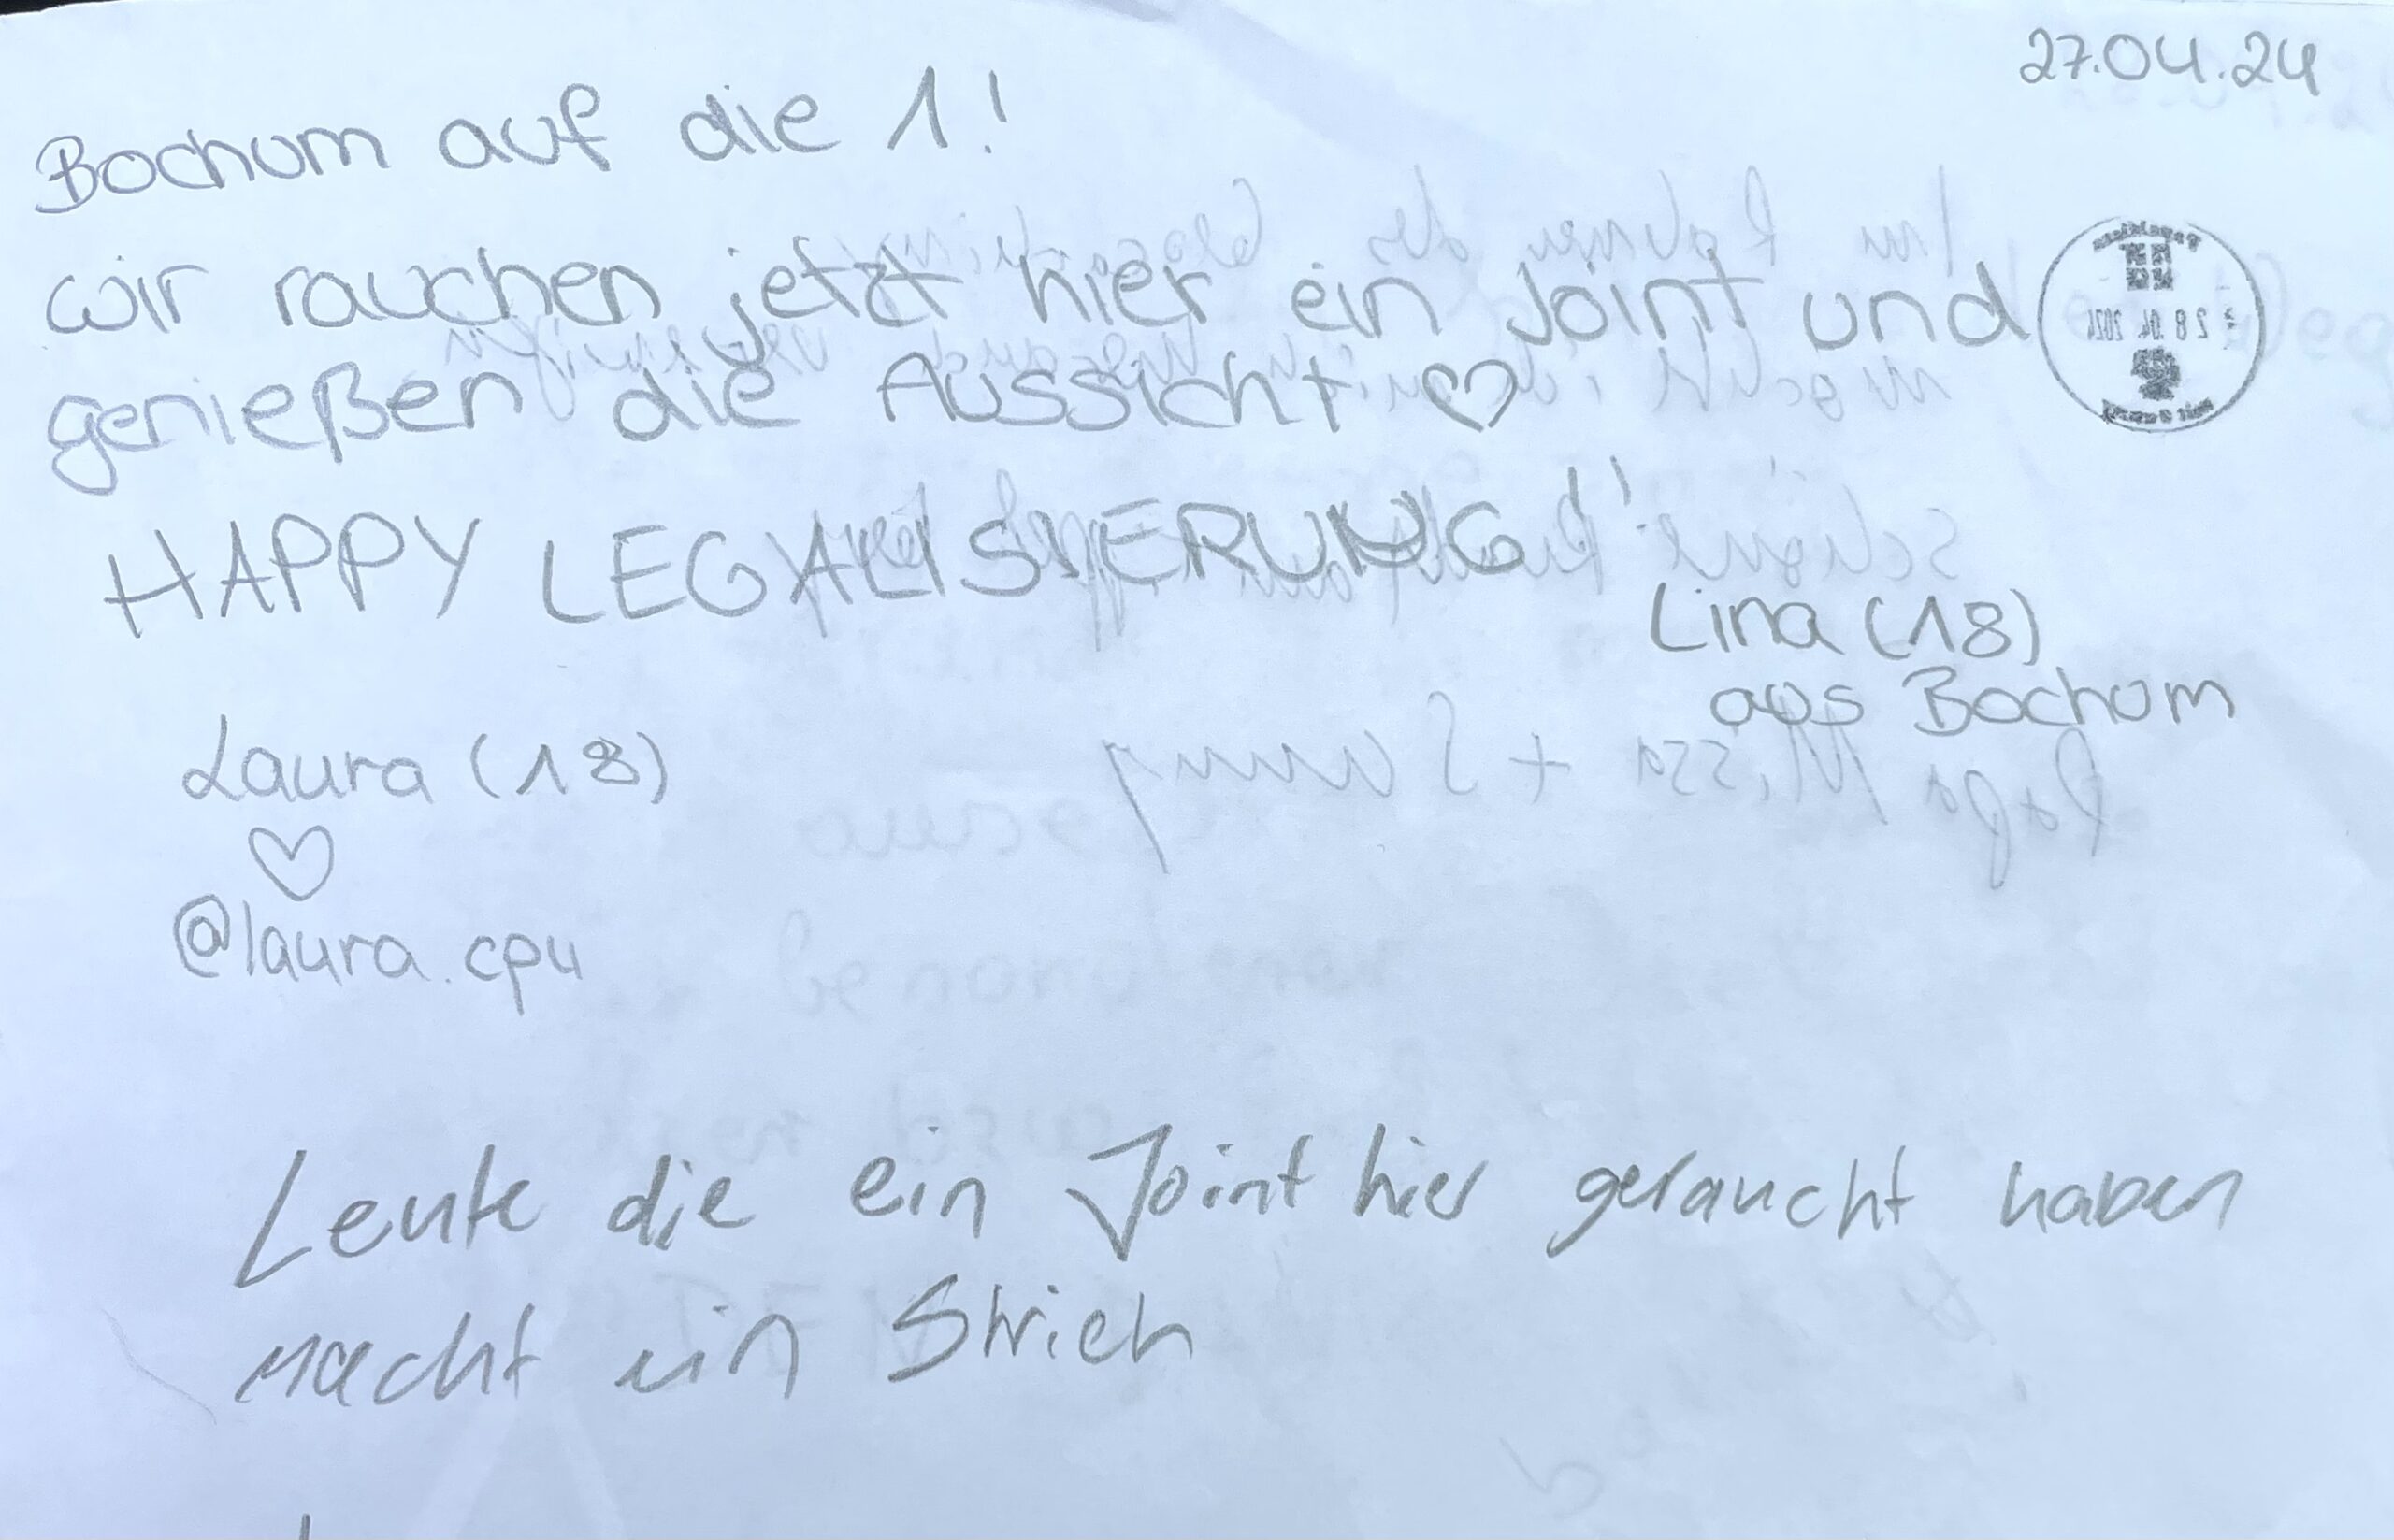 27.04.24
Bochum auf die 1!
wir rauchen jetzt hier ein Joint und
genießen die Aussicht ♡
HAPPY LEGALISIERUNG!!
Lina (18)
aus Bochum
Laura (18)
♡
@laura.cpu
Leute die ein Joint hier geraucht haben
macht ein Strich